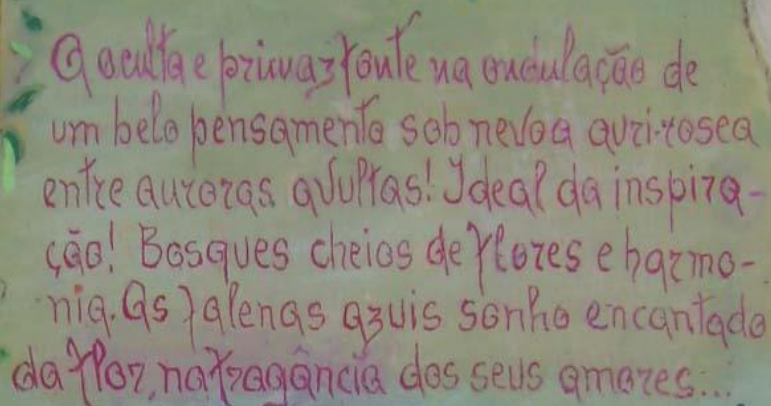 A oculta e primaz fonte na ondulação de
um belo pensamento sob nevoa auri-rosea
entre auroras avultas! Ideal da inspira-
ção! Bosques cheios de flores e harmo-
nia. As falenas azuis sonho encantado
da flor, na fragância dos seus amores...